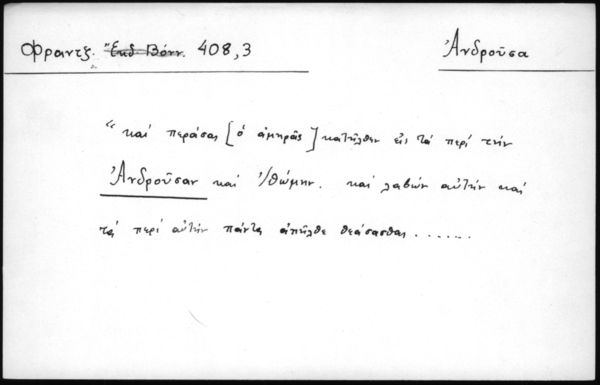 Φραντζ. Ἔκδ Βόνν. 408,3 Ἀνδροῦσα
“καί περάσας [ὁ ἀμηρᾶς] κατῆλθεν εἰς τά περί τήν
Ἀνδροῦσαν καί Ἰθώμην. καί λαβών αὐτήν καί
τά περί αὐτήν πάντα ἀπῆλθε θεάσασθαι .......